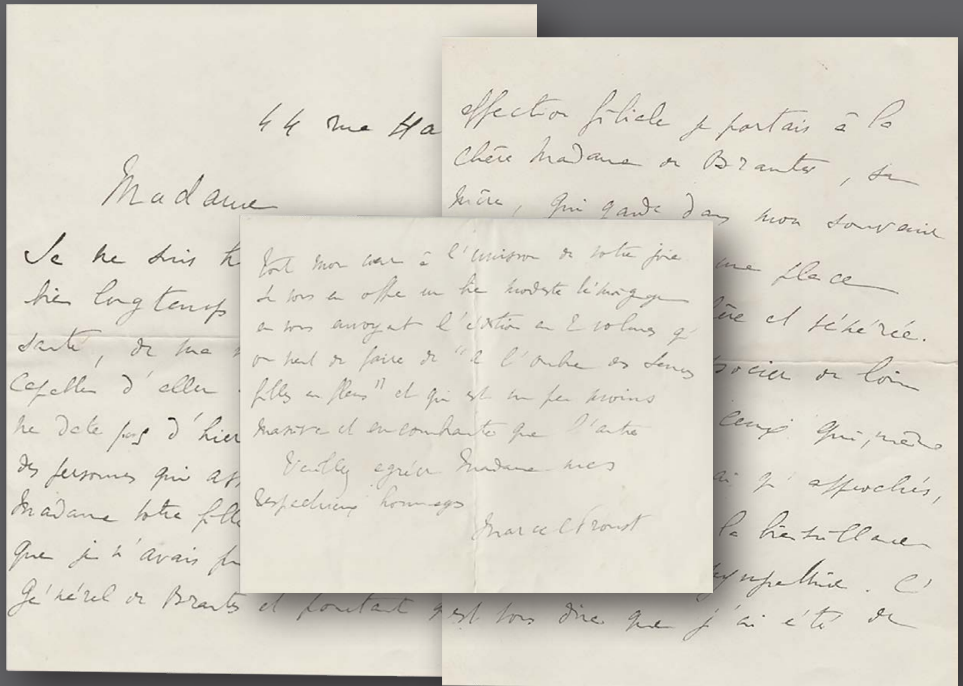 44 rue Ha
Madame
Je ne suis
bien longtemps
santé, de me
capables d'aller
ne date pas d'hier
des personnes qui
Madame votre fille
que je n'avais
Général de Brantes et pourtant
affection filiale je portais à la
chère Madame de Brantes, sa
mère, qui garde dans mon souvenir
une place
et vénérée.
de loin
ceux qui, même
approchés,
la bienveillance
sympathie. C'
est vous dire que j'ai été de
tout mon cœur à l'unisson de votre joie.
Je vous en offre un bien modeste témoignage
en vous envoyant l'édition en 2 volumes qu'
on vient de faire de "à l'ombre des jeunes
filles en fleurs" et qui est un peu moins
massive et encombrante que l'autre
Veuillez agréer Madame mes
respectueux hommages
Marcel Proust